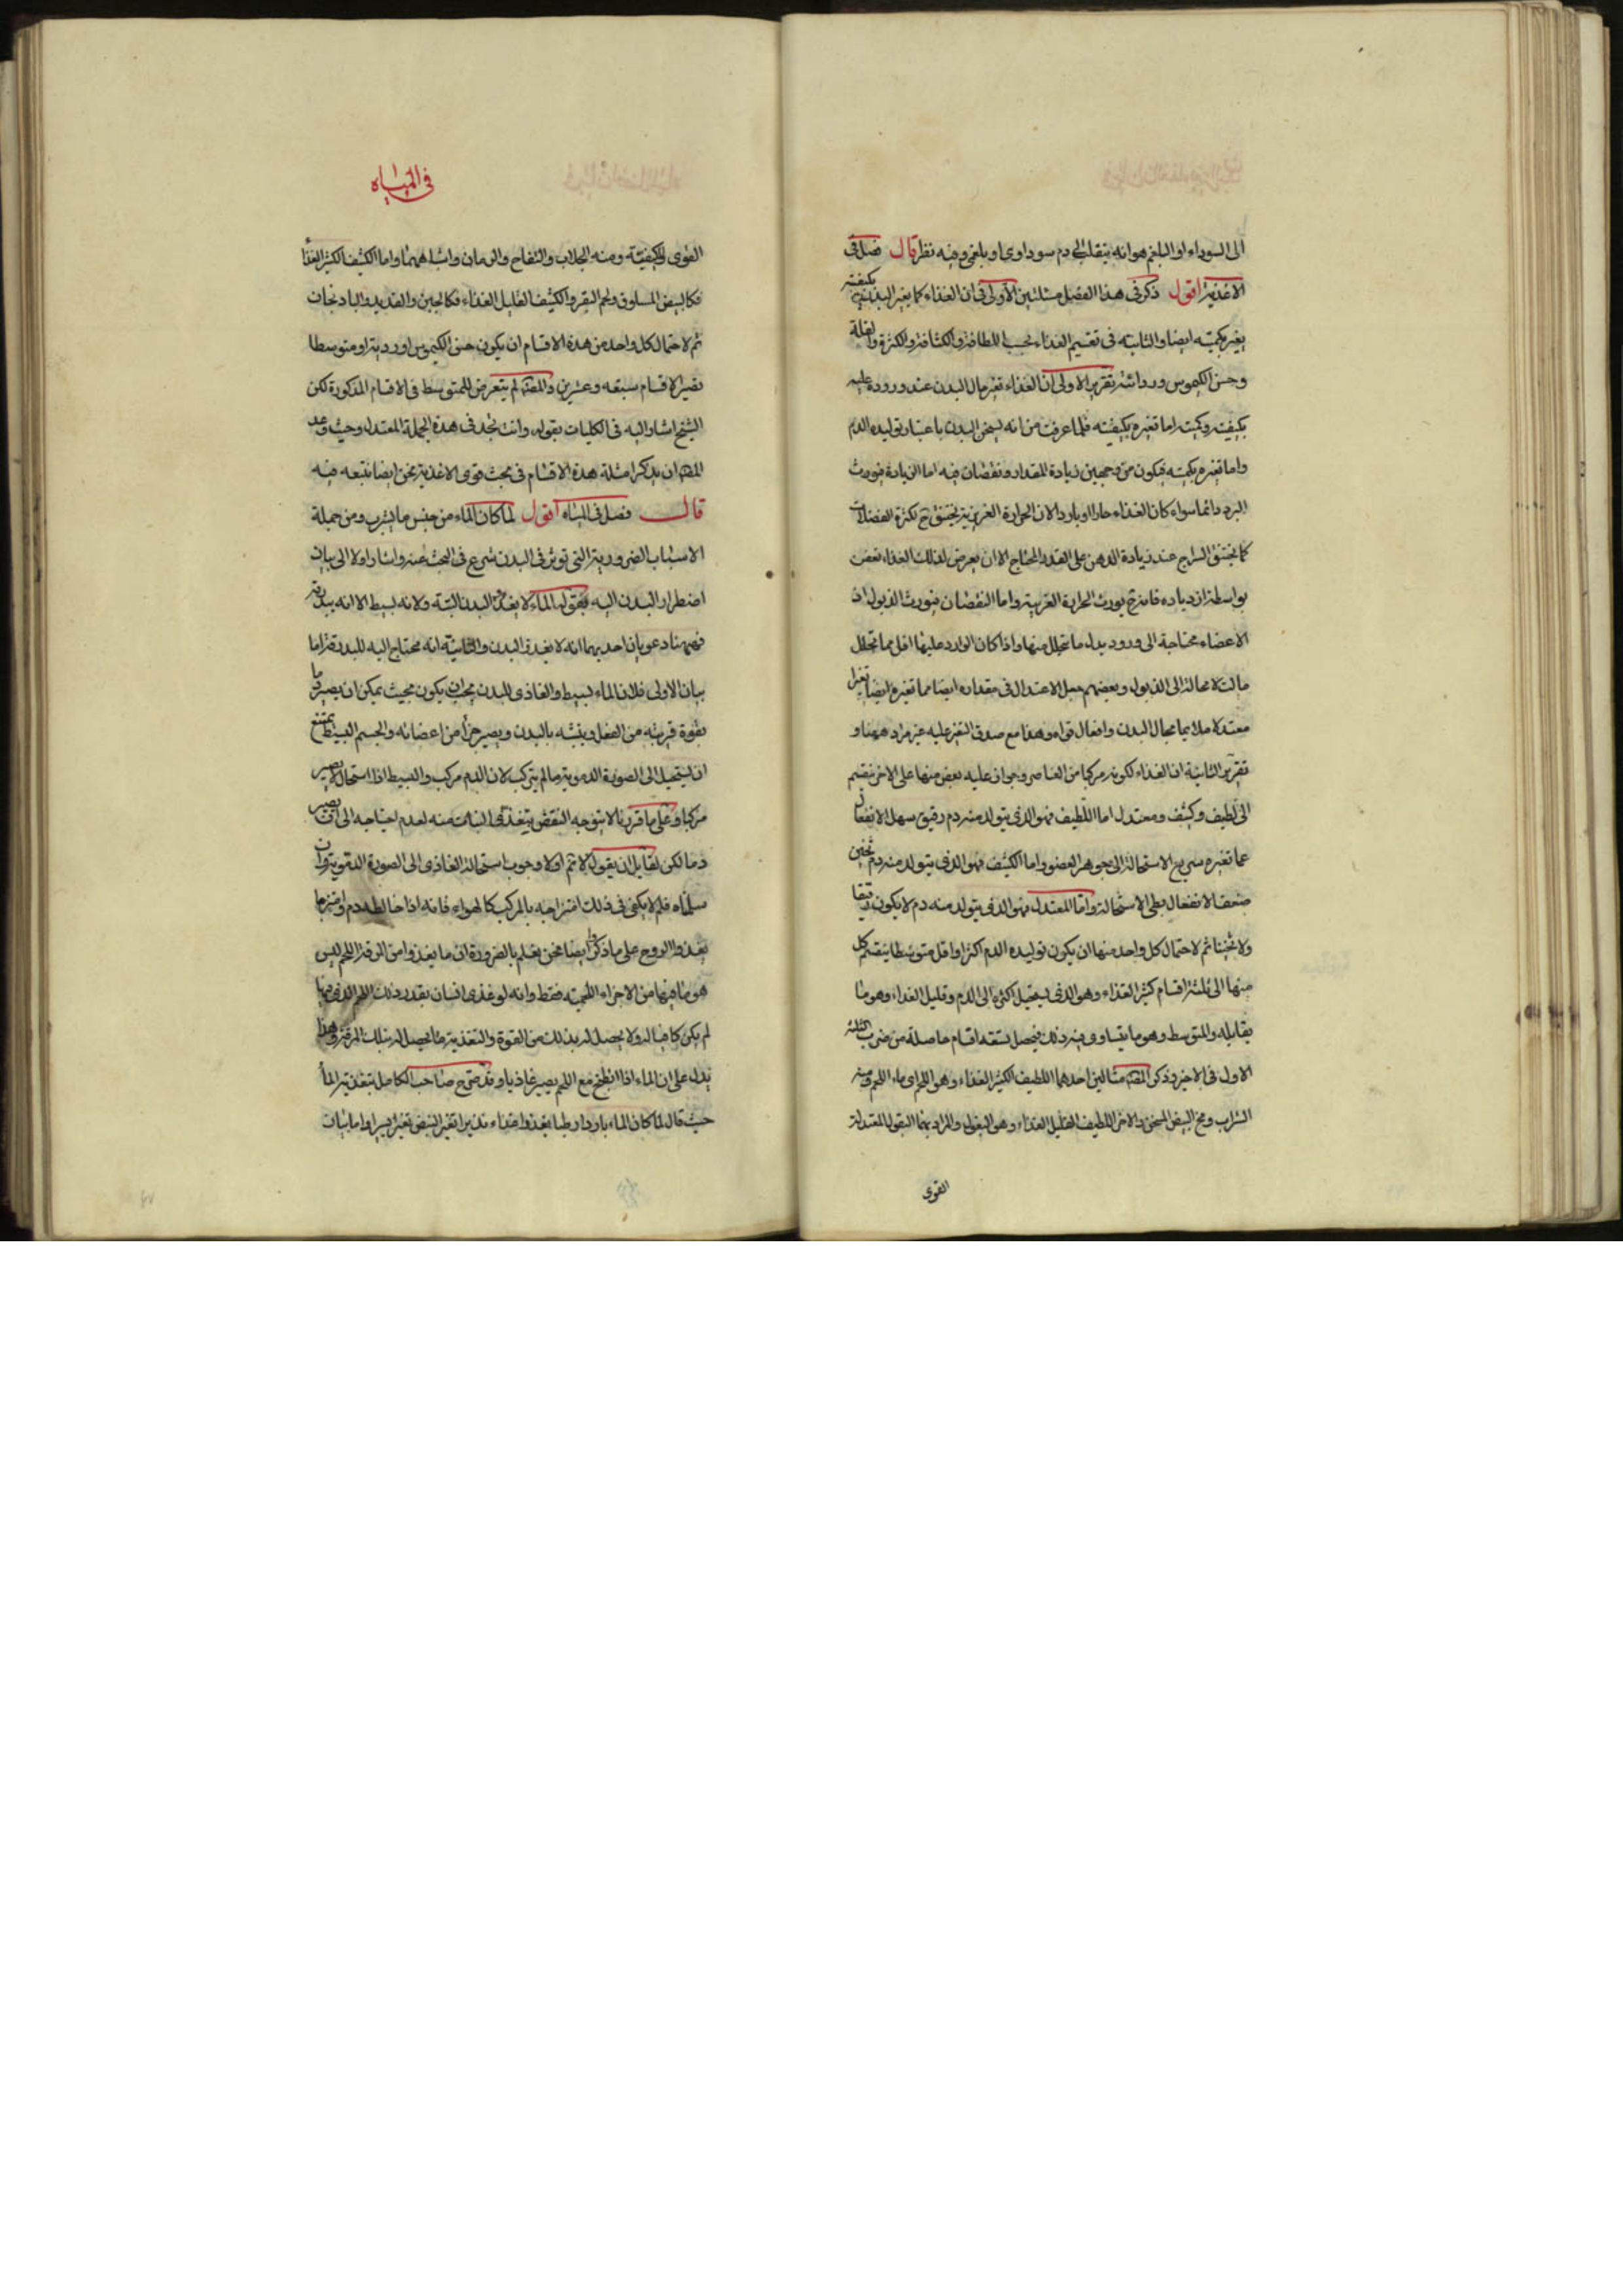 الى السوداء او البلغم هو انه ينقلب الى دم سوداوى او بلغمى وفيه نظر قال فصل فى
الاغذية اقول ذكر فى هذا الفصل مسئلتين الاولى فى ان الغذاء كما يغير البدن بكيفيته
يغير بكميته ايضا والثانية فى تقسيم الغذاء بحسب اللطافة والكثافة والكثرة والقلة
وحسن الكيموس ورداءته تقرير الاولى ان الغذاء تغير حال البدن عند وروده عليه
بكيفيته وكميته اما تغيره بكيفيته فلما عرفت من انه يسخن البدن باعتبار توليده الدم
واما تغيره بكميته فيكون من وجهين زيادة المقدار ونقصان فيه اما الزيادة فيورث
البرد دائما سواء كان الغذاء حارا او باردا لان الحرارة الغريزية تختنق ح لكثرة الفضلات
كما يختنق السراج عند زيادة الدهن على القدر المحتاج الا ان يعرض لذلك الغذاء تعفن
بواسطة ازدياده فانه ح يورث الحرارة الغريبة واما النقصان فيورث الذبول اذ
الاعضاء محتاجة الى ورود بدل ما تتحلل منها واذا كان الوارد عليها اقل مما تحلل
مالت لا محالة الى الذبول وبعضهم جعل الاعتدال فى مقداره ايضا مما تغيره ايضا تغيرا
معتدلا ملايما بحال البدن وافعال قواه وهذا مع صدق التغير عليه غير مراد ههنا و
تقرير الثانية ان الغذاء لكونه مركبا من العناصر وجواز عليه بعض منها على الاخر ينقسم
الى لطيف وكثيف ومعتدل اما اللطيف فهو الذى يتولد منه دم رقيق سهل الانفعال
عما تغيره سريع الاستحالة الى جوهر العضو واما الكثيف فهو الذى يتولد منه دم ثخين
ضعف الانفعال بطى الاستحالة واما المعتدل فهو الذى يتولد منه دم لا يكون رقيقا
ولا ثخينا ثم لاحتمال كل واحد منها ان يكون توليده الدم اكثر او اقل متوسطا ينقسم كل
منها الى ثلثة اقسام كثير الغذاء وهو الذى يستحيل اكثره الى الدم وقليل الغذاء وهو ما
يقابله والمتوسط وهو ما يتساوى فيه ذلك فيحصل تسعة اقسام حاصلة من ضرب الثلثة
الاول فى الاخير وذكر المص مثالين احدهما اللطيف الكثير الغذاء وهو اللحم اى ماء اللحم ومنه
الشراب ومخ البيض المسخن والاخر اللطيف القليل الغذاء وهى البقول والمراد بهما البقول المعتدلة
القوى
فى المياه
القوى والكيفية ومنه الجلاب والتفاح والرمان وامثالهما واما الكثيف الكثير الغذا
فكالبيض المسلوق ولحم البقر والكثيف القليل الغذاء فكالجبن والقديد والباذنجان
ثم لاحتمال كل واحد من هذه الاقسام ان يكون حسن الكيموس او رديه او متوسطا
تصير الاقسام سبعه وعشرين والمص لم يتعرض للمتوسط فى الاقسام المذكورة لكن
الشيخ اشار اليه فى الكليات بقوله وانت تجد فى هذه الجملة المعتدل وحيث وعد
المص ان يذكر امثلة هذه الاقسام فى بحث قوى الاغذية نحن ايضا نتبعه فيه
قال فصل فى المياه اقول لما كان الماء من جنس ما يشرب ومن جملة
الاسباب الضرورية التى توثر فى البدن شرع فى البحث عنه واشار اولا الى بيان
اضطرار البدن اليه بقوله الماء لا يغذو البدن البتة ولانه بسيط الا انه يبدرقه
فههنا دعويان احديهما انه لا يغذو البدن والثانية انه محتاج اليه للبدرقة اما
بيان الاولى فلان الماء بسيط والغاذى للبدن يجب ان يكون بحيث يمكن ان يصير دما
بقوة قريبه من الفعل ويتشبه بالبدن ويصير جزأ من اعضائه والجسم البسيط يمتنع
ان يستحيل الى الصورة الدموية ما لم يتركب لان الدم مركب والبسيط اذا استحال لا يصير
مركبا وعلى ما قررنا لا يتوجه النقض بتغذى النبات منه لعدم احتياجه الى ان يصير
دما لكن لقايل ان يقول لا نم اولا وجوب استحالة الغاذى الى الصورة الدموية وان
سلمناه فلم لا يكفى فى ذلك امتزاجه بالمركب كالهواء فانه اذا خالطه دم وامتزجا
يغذو الروح على ما ذكروا ايضا نحن نعلم بالضرورة ان ما يغذوا من المرقة اللحم ليس
هو ما فيها من الاجزاء اللحمية فقط وانه لو غذى انسان بقدر ذلك اللحم الذى فيها
لم يكن كافيا له ولا يحصل له بذلك من القوة والتغذية ما يحصل له بتلك المرقة وهذا
يدل على ان الماء اذا انطبخ مع اللحم يصير غاذيا وقد صرح صاحب الكامل بتغذية الماء
حيث قال لما كان الماء باردا رطبا يغذوا غذاء يسيرا تغير النبض تغيرا يسيرا واما بيان